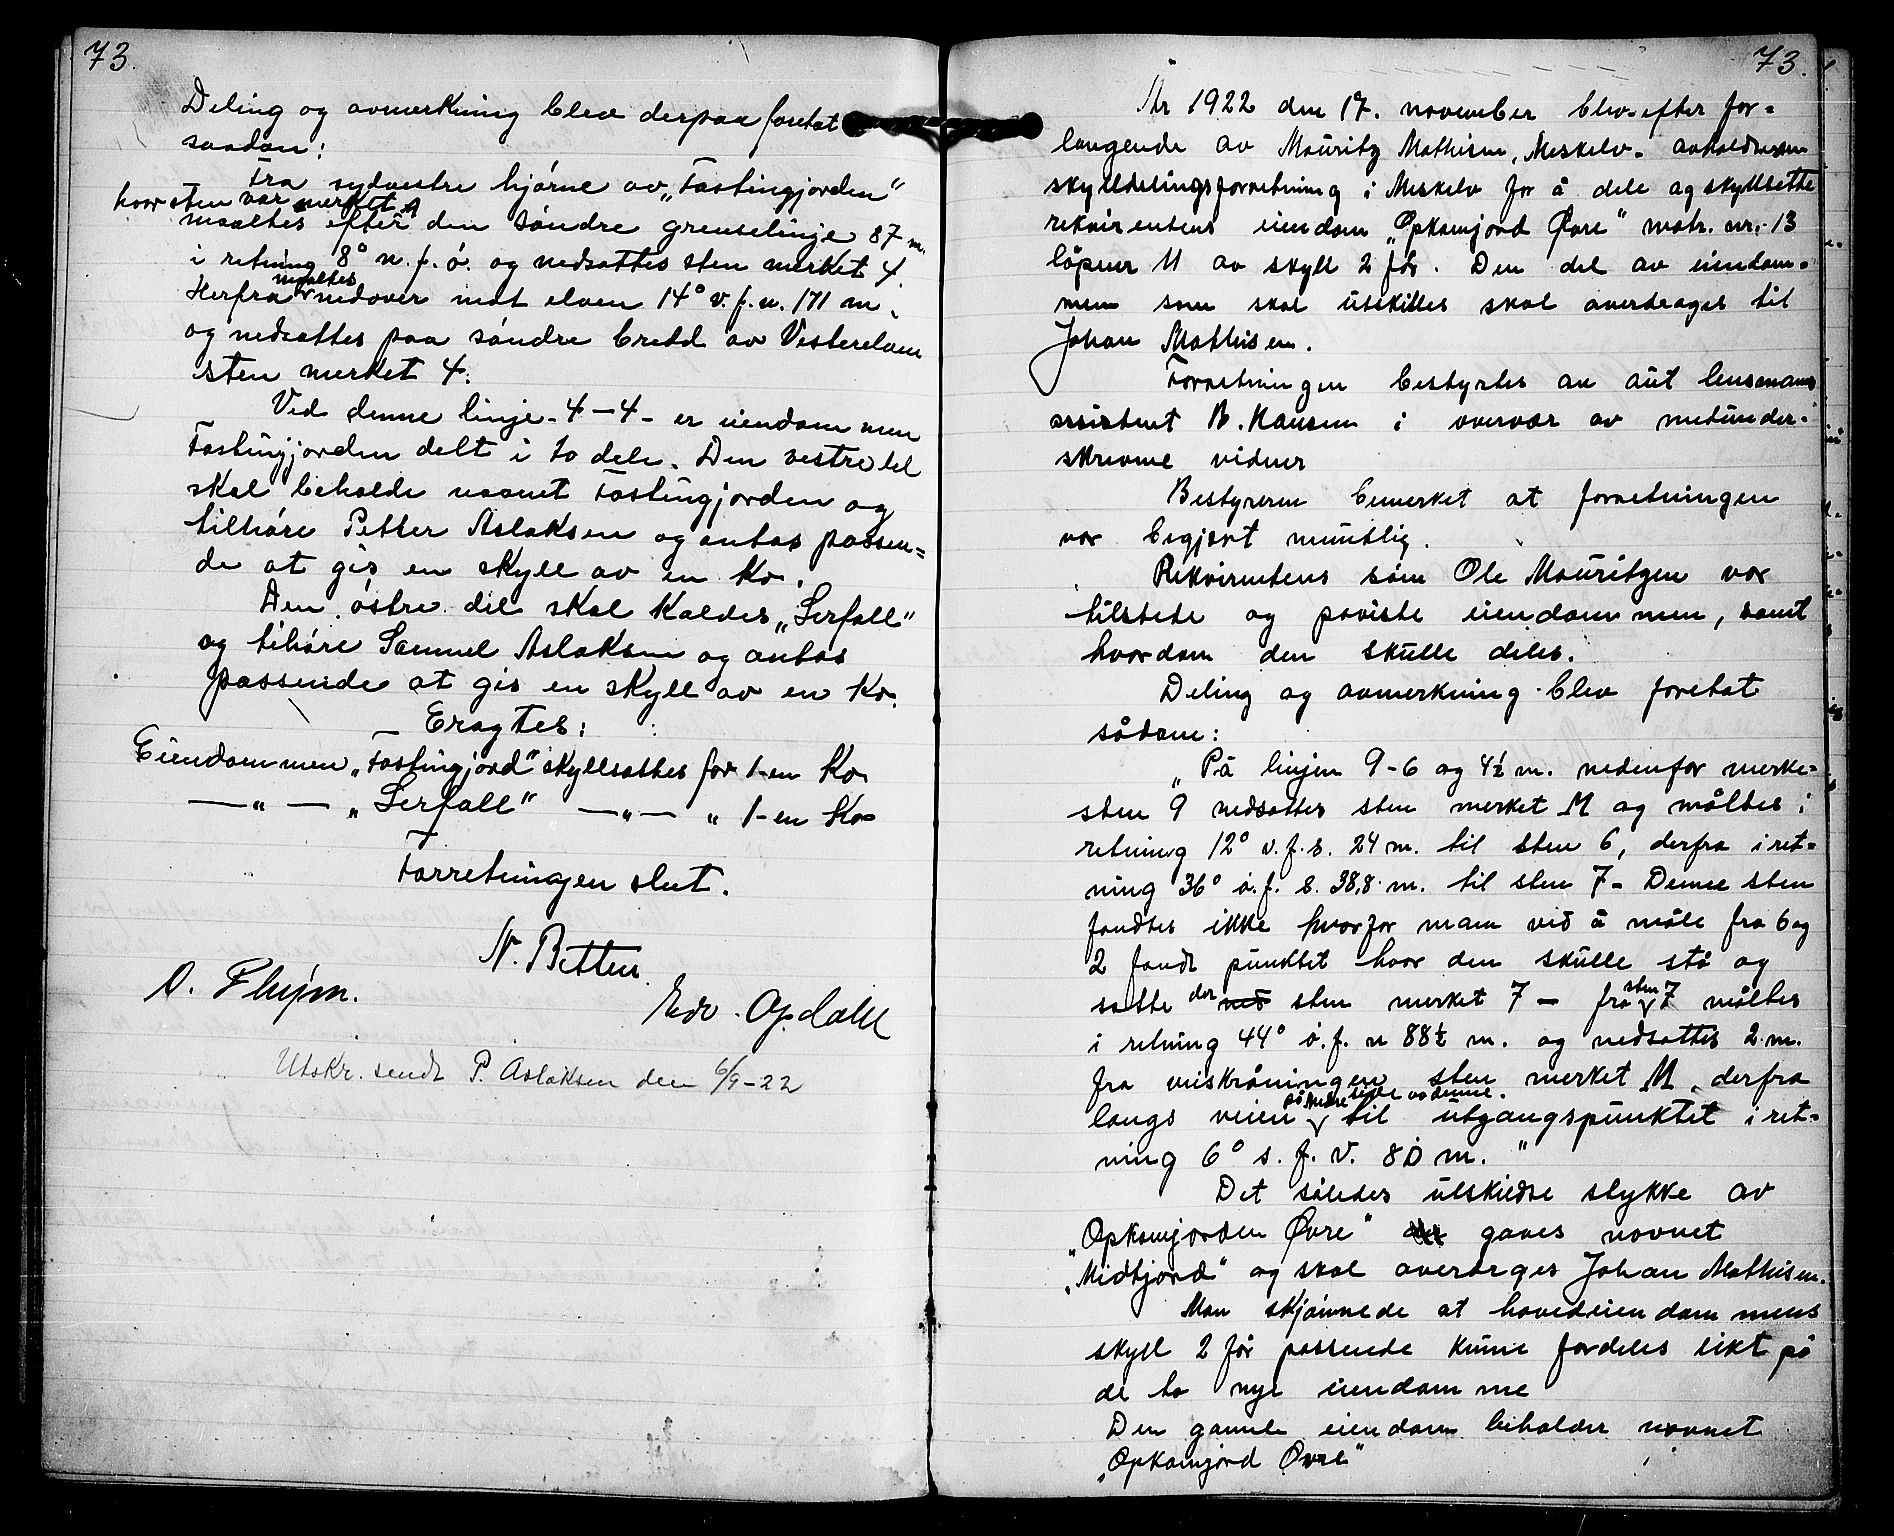 73.
Deling og avmerkning blev derpaa foretat
saadan:
Fra sydvestre hjørne av „Fastingjorden"
hvor sten var merket A
maaltes efter den søndre grenselinje 87 m.
i retning 8° n. f. ö. og nedsattes sten merket 4.
Herfra maaltes nedover mot elven 14° v. f. n. 171 m.
og nedsattes paa søndre bredd av Vesterelven
sten merket 4.
Ved denne linje - 4 — 4 - er eiendommen
Fastingjorden delt i to dele. Den vestre del
skal beholde navnet Fastingjorden og
tilhøre Petter Aslaksen og antas passen=
de at gis en skyll av en Ko.
Den østre del skal kaldes „Lerfall"
og tihøre Samuel Aslaksen og antas
passende at gis en skyll av en Ko.
Eragtes:
Eiendommen „Fastingjord" skyllsattes for 1-en Ko
— „ — „Lerfall" — „ — „ 1-en Ko
Forretningen slut.
N. Betten
O. Fhijm.
Edv. Opdahl
Utskr. sendt P. Aslaksen den 6/9-22
73.
År 1922 den 17. november blev efter for=
langende av Mauritz Mathisen, Meskelv. avholdt
skylldelingsforretning i Meskelv for å dele og skyllsette
rekvirentens eiendom „Opkomjord Øvre" matr. nr. 13
löpenr 11 av skyll 2 får. Den del av eiendom-
men som skal utskilles skal overdrages til
Johan Mathisen.
Forretningen bestyrtes av aut lensmans
assistent B. Hansen i overvær av nedunder-
skrevne vidner
Bestyreren bemerket at forretningen
var begjært muntlig.
Rekvirentens søn Ole Mauritzen var
tilstede og påviste eiendommen, samt
hvordan den skulle deles.
Deling og avmerkning blev foretat
sådan:
„På linjen 9-6 og 4½ m. nedenfor merke=
sten 9 nedsattes sten merket M og måltes i
retning 12° v. f. s. 24 m. til sten 6, derfra i ret=
ning 36° ö. f. s. 38,8 m. til sten 7 - Denne sten
fandtes ikke hvorfor man ved å måle fra 6 og
2 fandt punktet hvor den skulle stå og
satte der ned sten merket 7 — fra sten 7 måltes
i retning 44° ö. f. n 88½ m. og nedsattes 2 m.
fra veiskråningen sten merket M, derfra
langs veien på nedre side av denne til utgangspunktet i ret=
ning 6° s. f. v. 80 m. "
Det således utskiedte stykke av
„Opkomjorden Øvre" gaves navnet
„Midtjord" og skal overdrges Johan Mathisen.
Man skjønnede at hovedeiendommens
skyll 2 får passende kunne fordeles likt på
de to nye eiendomme
Den gamle eiendom beholder navnet
„Opkomjord Øvre"